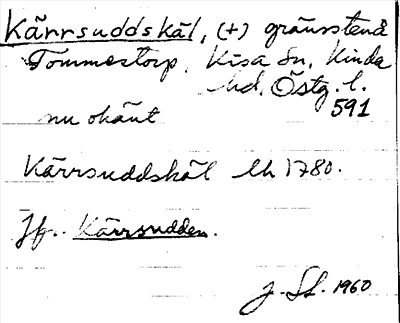 Kärrsuddskäl, (+) gränsstenå
Tommestorp. Kisa sn, Kinda
hd. Östg. l.
591
nu okänt
Kärrsuddskäl lh 1780.
Jfr. Kärrsudden.
J. St. 1960